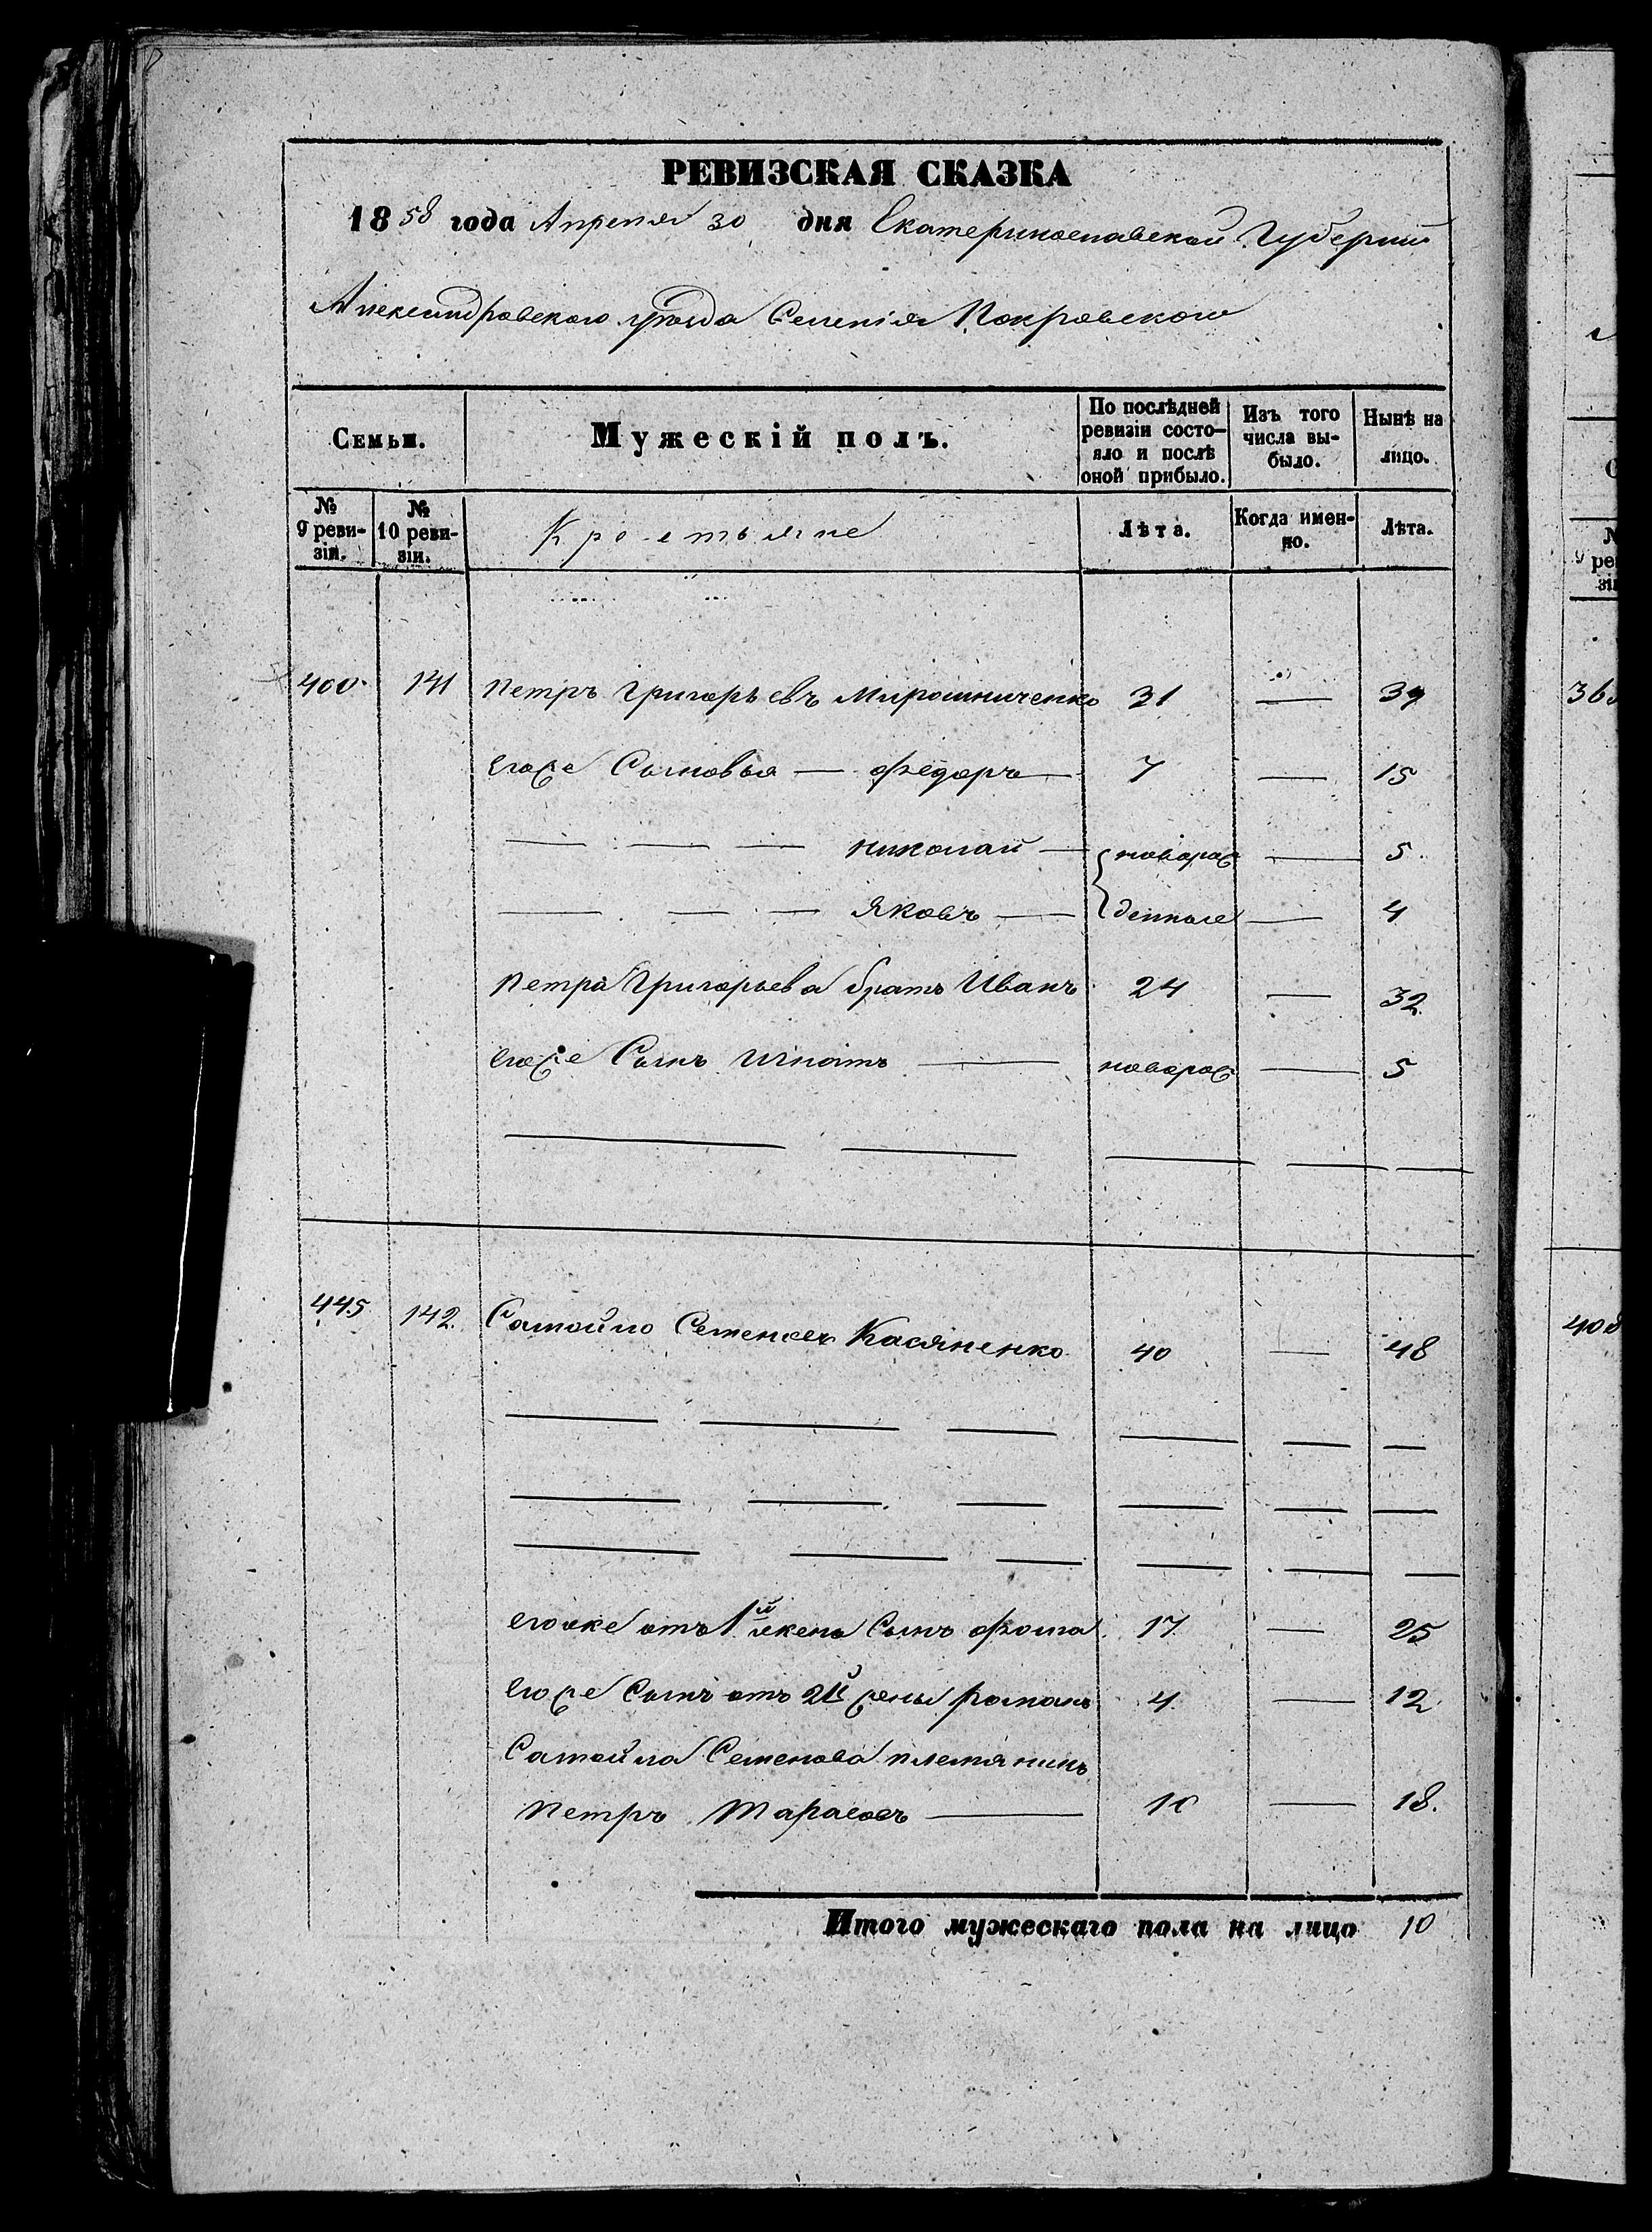 РЕВИЗСКАЯ СКАЗКА
1858 года Апреля 30 дня Екатеринославской Губернии
Александровского уезда Селенія Покровского
Семьи. Мужескій полъ. По послѣдней ревизіи состо-яло и послѣ оной прибыло. Изъ того числа вы-было. Нынѣ на лицо.
№ 9 реви-зіи. № 10 реви-зіи. Крестьяне Лѣта. Когда имен-но. Лѣта.
400 141 Петръ Григорьевъ Мирошниченко 31 — 39
егоже Сыновья — Федоръ — 7 — 15
— — — Николай — новорож — 5
— — — Яковъ — денные — 4
Петра Григорьева братъ Иванъ 24 — 32
егоже Сынъ Игнатъ — новорож — 5
445 142 Самойло Семеновъ Касяненко 40 — 48
егоже отъ 1й жены Сынъ Фома 17 — 25
егоже Сынъ отъ 2й жены Романъ 4 — 12
Самойла Семенова племянникъ
Петръ Тарасовъ — 10 — 18.
Итого мужескаго пола на лицо 10
№
9
ре
зі
36
408